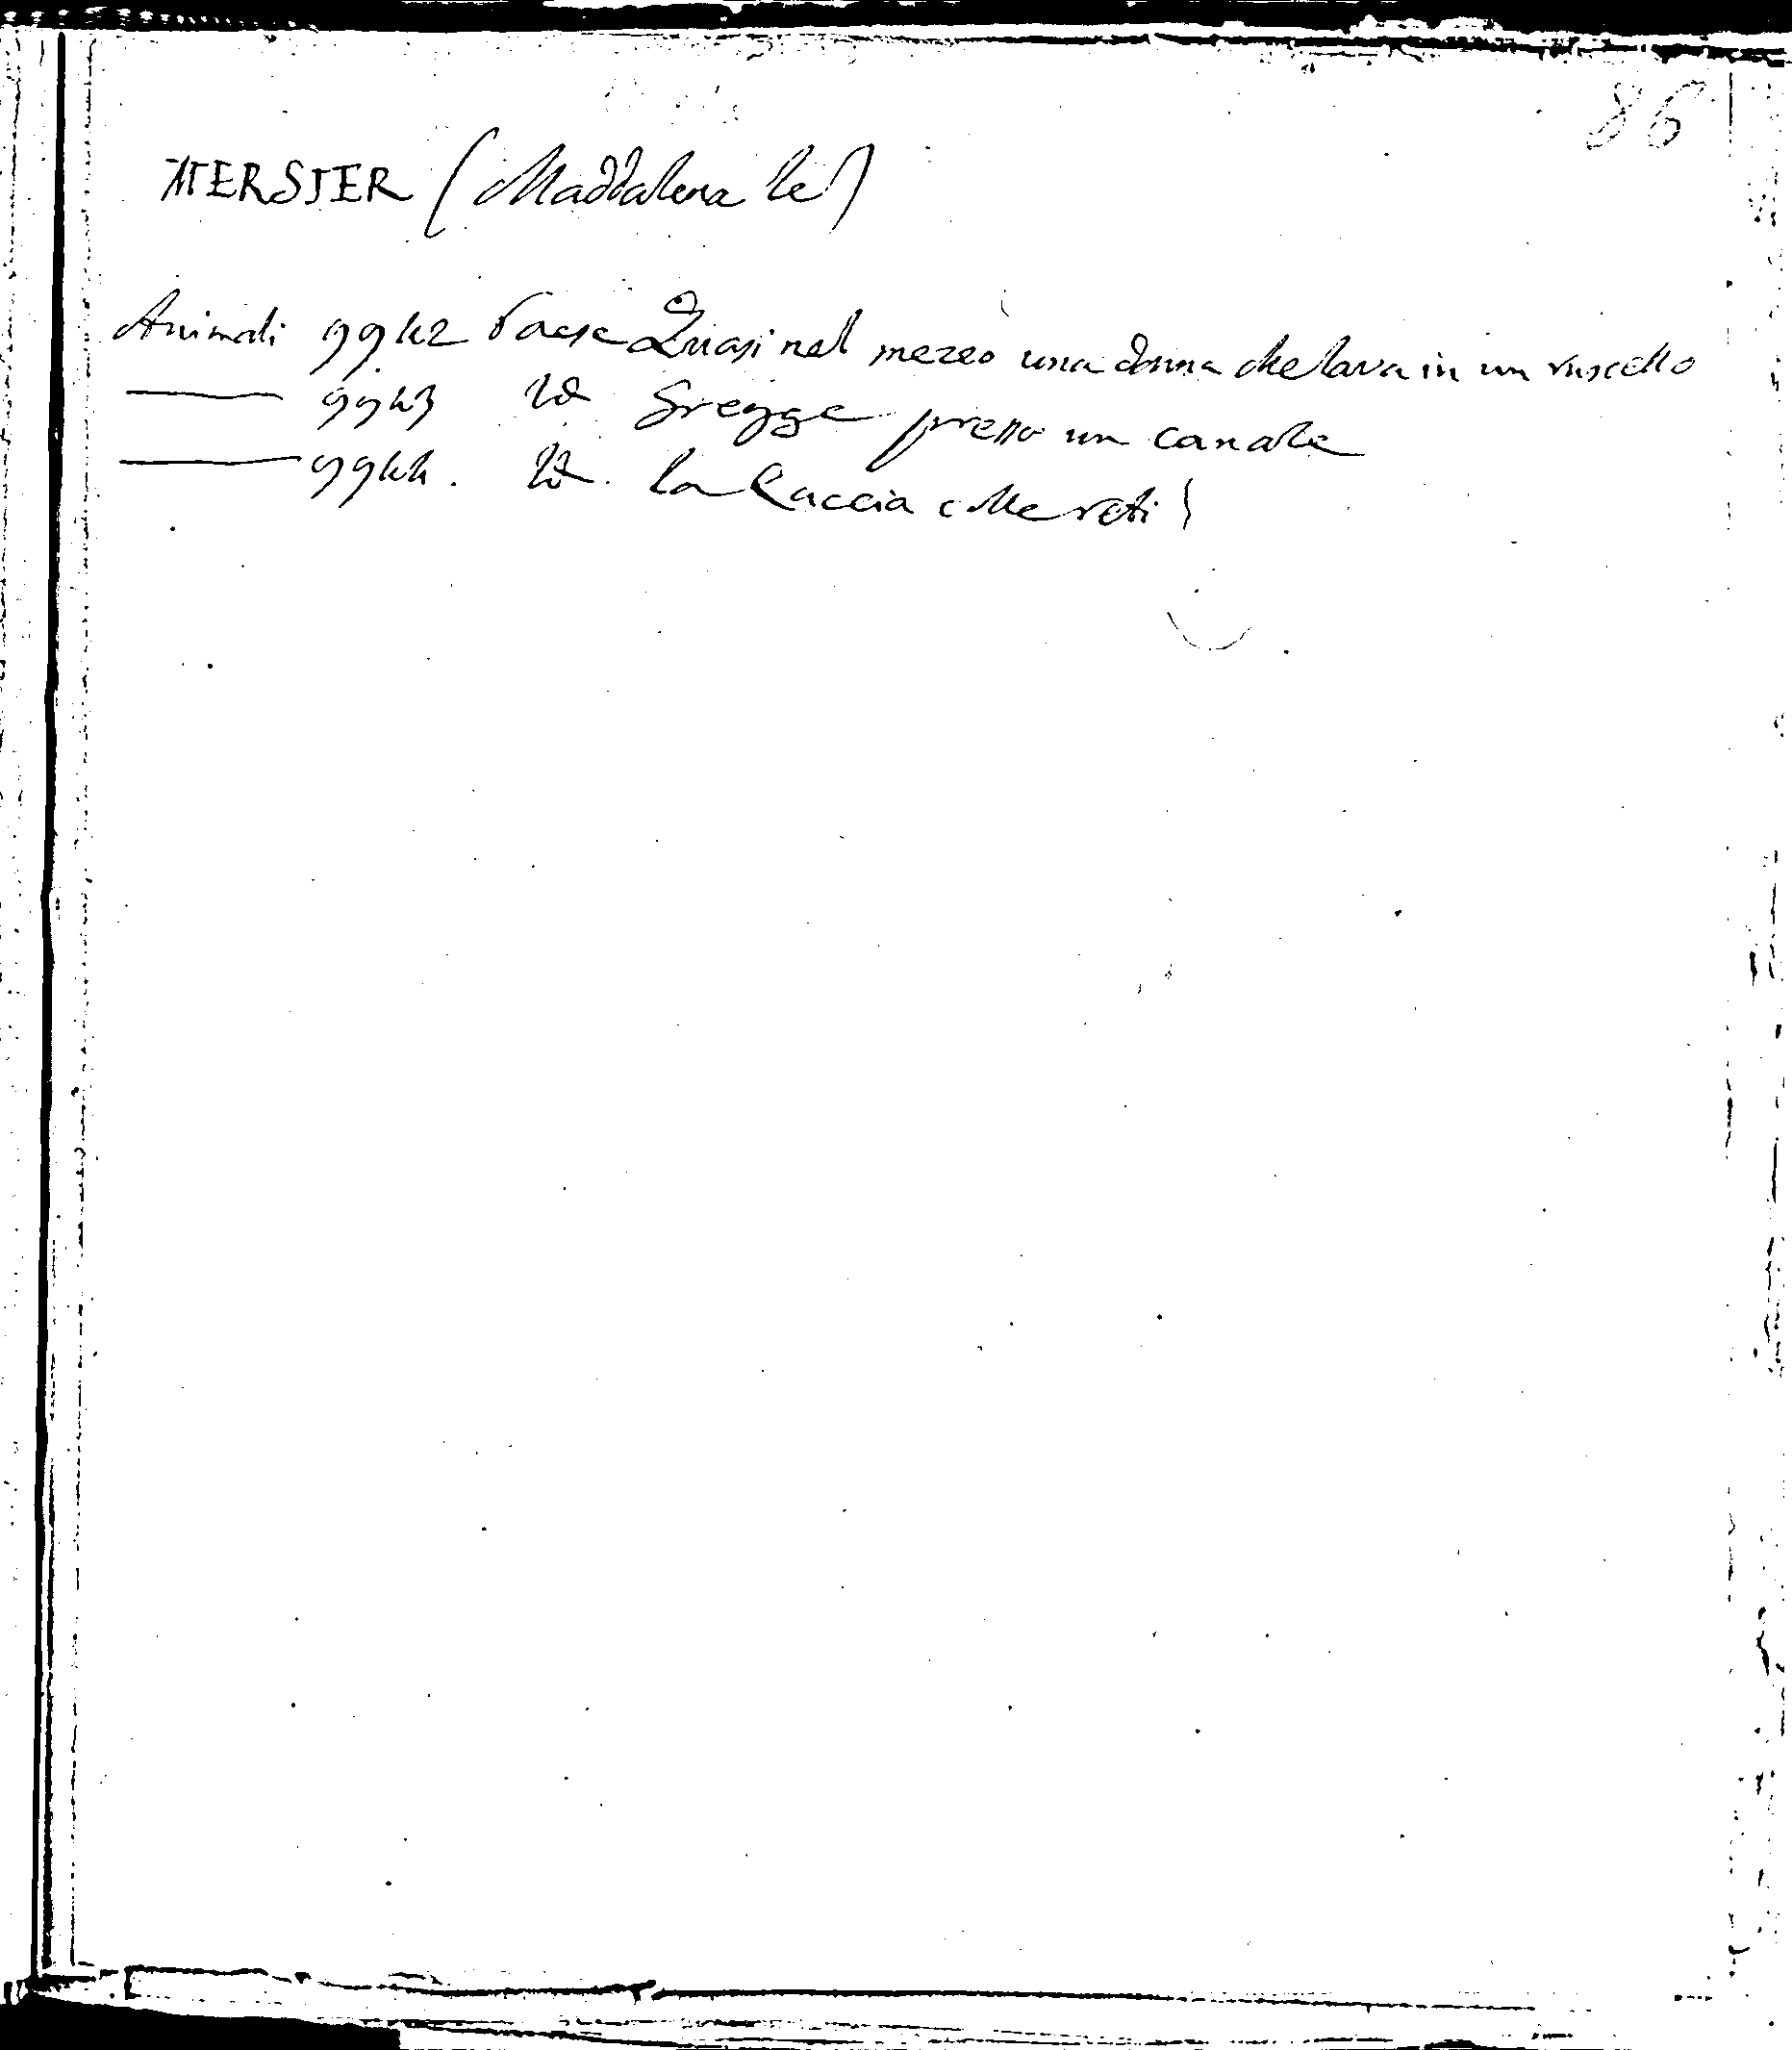 86
MERSIER (Maddalena le)
Animali 9942 Paese Quasi nel mezzo una donna che lava in un ruscello
—— 9943 Id Gregge presso un canale
—— 9944. Id. la Caccia colle reti